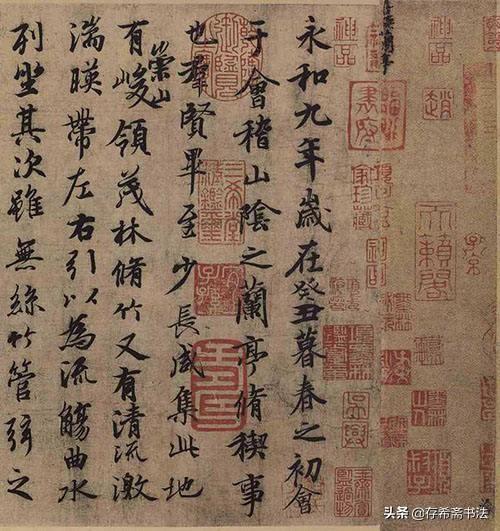 神品
天籟閣
永和九年歲在癸丑暮春之初會
于會稽山陰之蘭亭脩禊事
也羣賢畢至少長咸集此地
有崇山峻領茂林脩竹又有清流激
湍暎帶左右引以為流觴曲水
列坐其次雖無絲竹管弦之
三希堂精鑑璽
宜子孫
头条 @存希斋书法